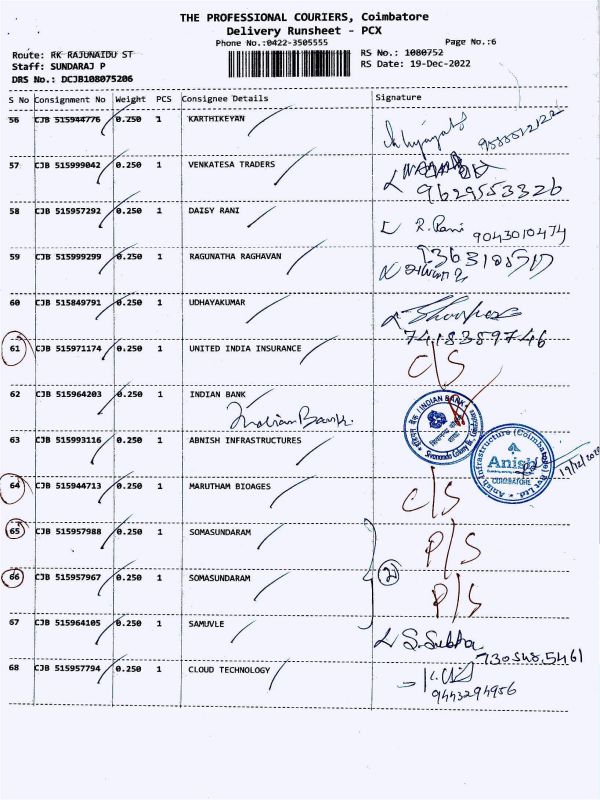 THE PROFESSIONAL COURIERS, Coimbatore
Delivery Runsheet - PCX
Phone No.:0422-3505555
Page No.:6
Route: RK RAJUNAIDU ST
RS No.: 1080752
Staff: SUNDARAJ P
RS Date: 19-Dec-2022
DRS No.: DCJB108075206
S No Consignment No Weight PCS Consignee Details Signature
56 CJB 515944776 0.250 1 KARTHIKEYAN
57 CJB 515999042 0.250 1 VENKATESA TRADERS
9629553326
58 CJB 515957292 0.250 1 DAISY RANI R. Rani 9043010474
59 CJB 515999299 0.250 1 RAGUNATHA RAGHAVAN
60 CJB 515849791 0.250 1 UDHAYAKUMAR
7418389746
61 CJB 515971174 0.250 1 UNITED INDIA INSURANCE C/S
62 CJB 515964203 0.250 1 INDIAN BANK
Indian Bank. INDIAN BANK
63 CJB 515993116 0.250 1 ABNISH INFRASTRUCTURES
Anish Infrastructure (Coimbatore) Pvt Ltd.
Anish
COIMBATORE
64 CJB 515944713 0.250 1 MARUTHAM BIOAGES C/S
65 CJB 515957988 0.250 1 SOMASUNDARAM P/S
66 CJB 515957967 0.250 1 SOMASUNDARAM P/S
67 CJB 515964105 0.250 1 SAMUVLE S. Subha
730548.5461
68 CJB 515957794 0.250 1 CLOUD TECHNOLOGY
9443294956